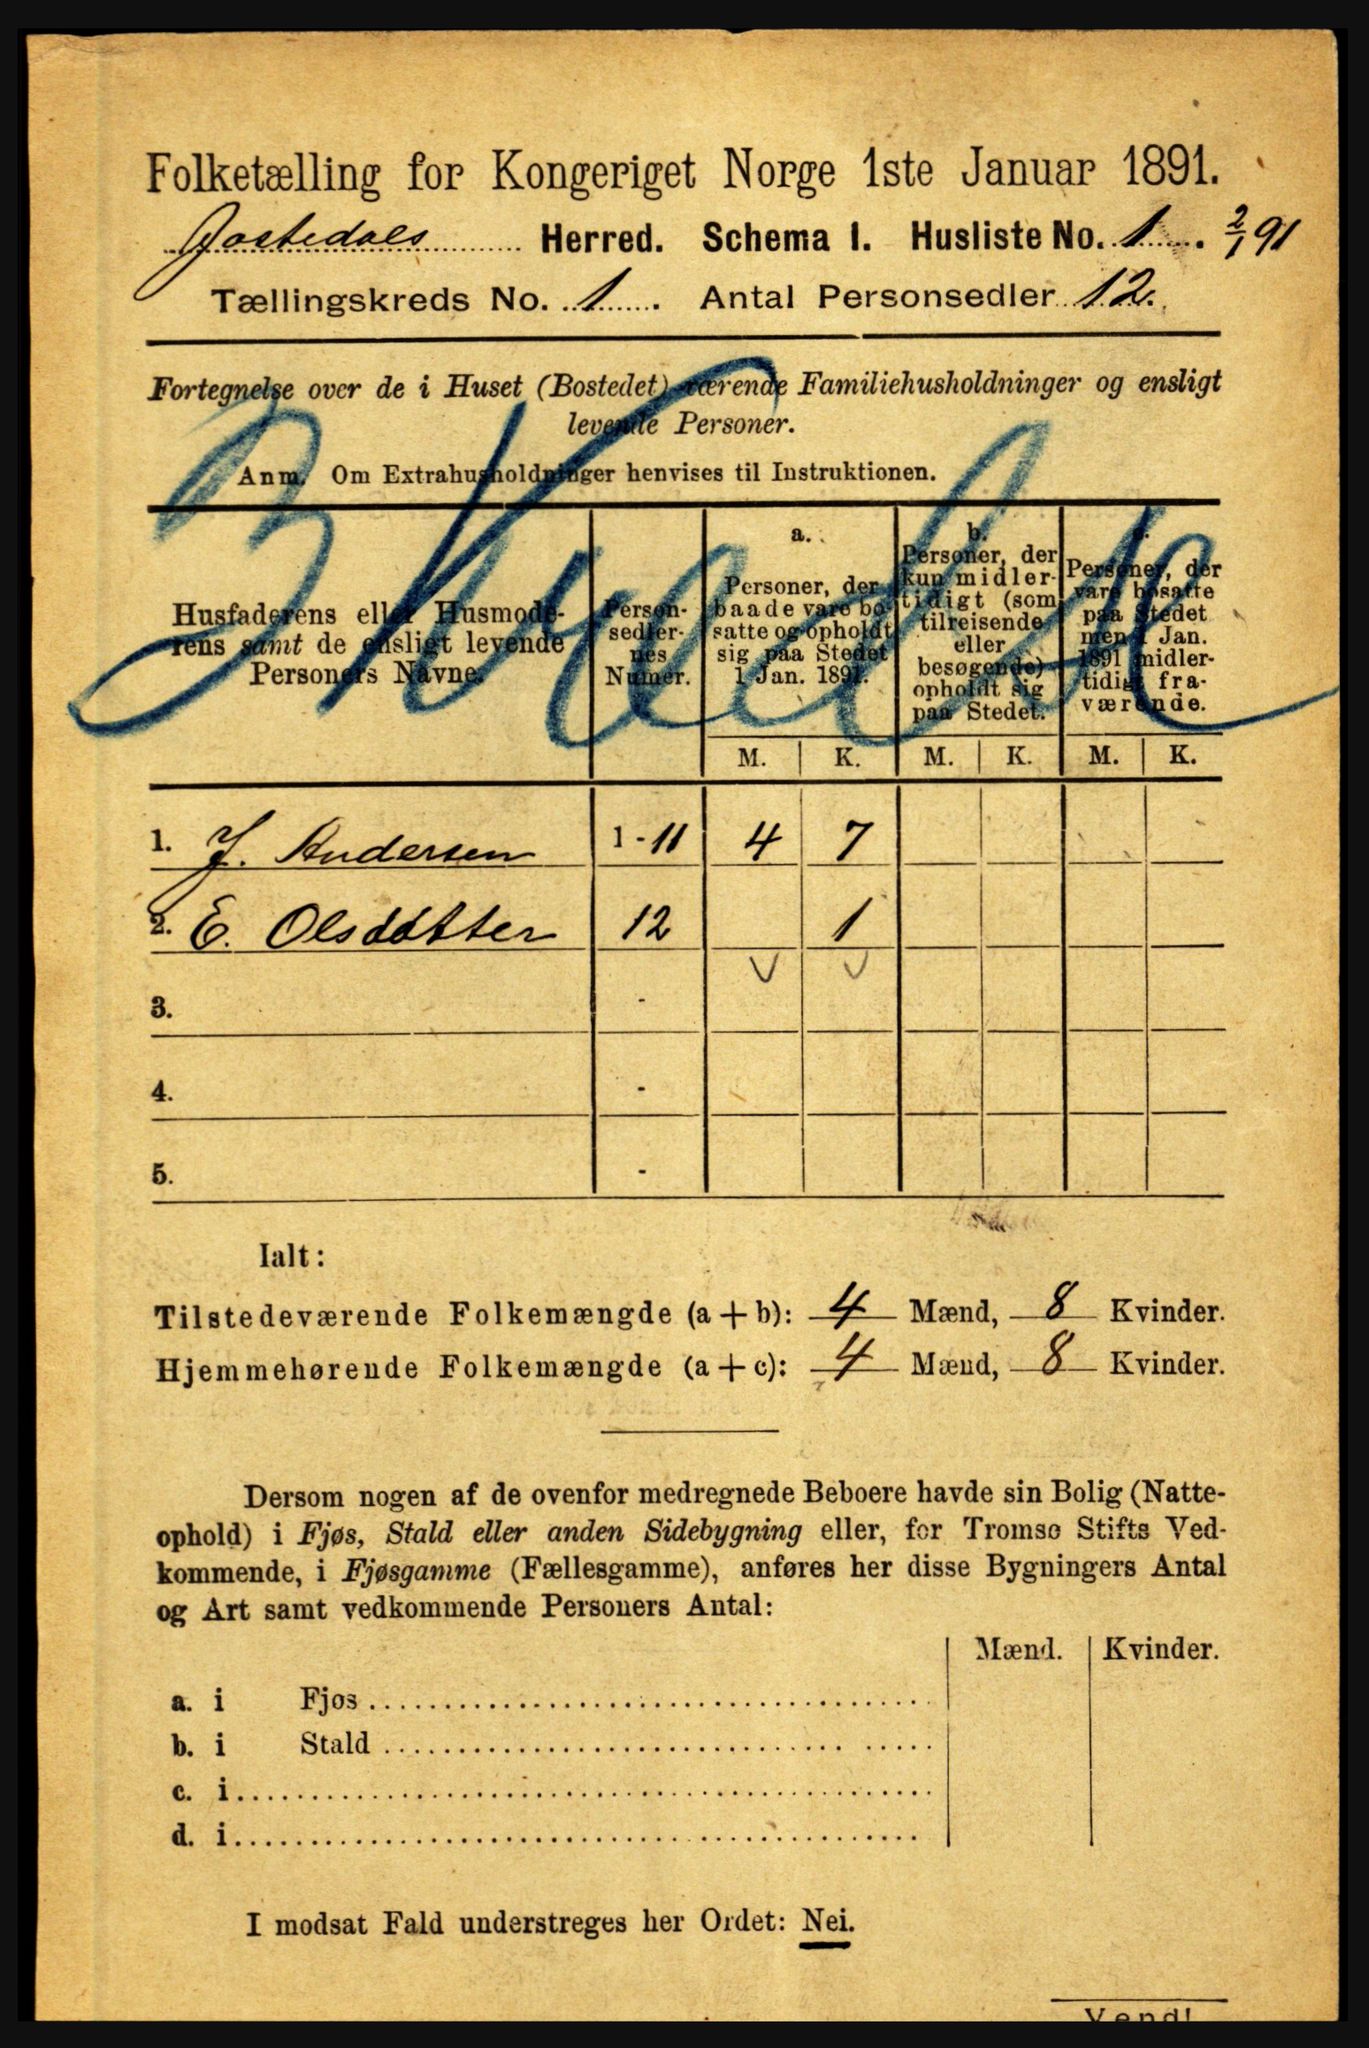 Folketælling for Kongeriget Norge 1ste Januar 1891.
Jostedals Herred. Schema 1. Husliste No. 1. 2/1 91
Tællingskreds No. 1. Antal Personsedler 12.
Fortegnelse over de i Huset (Bostedet) værende Familiehusholdninger og ensligt
levende Personer.
Anm. Om Extrahusholdninger henvises til Instruktionen.
Husfaderens eller Husmode-
rens samt de ensligt levende
Personers Navne.
Person-
sedler-
nes
Numer.
a.
Personer, der
baade vare bo-
satte og opholdt
sig paa Stedet
1 Jan. 1891.
b.
Personer, der
kun midler-
tidigt (som
tilreisende
eller
besøgende)
opholdt sig
paa Stedet.
c.
Personer, der
vare bosatte
paa Stedet
men 1 Jan.
1891 midler-
tidigt fra-
værende.
M. K. M. K. M. K.
1. J. Andersen 1-11 4 7
2. E. Olsdotter 12 1
3. -
4. -
5. -
Ialt:
Tilstedeværende Folkemængde (a + b): 4 Mænd, 8 Kvinder.
Hjemmehørende Folkemængde (a + c): 4 Mænd, 8 Kvinder.
Dersom nogen af de ovenfor medregnede Beboere havde sin Bolig (Natte-
ophold) i Fjøs, Stald eller anden Sidebygning eller, for Tromsø Stifts Ved-
kommende, i Fjøsgamme (Fællesgamme), anføres her disse Bygningers Antal
og Art samt vedkommende Personers Antal:
Mænd. Kvinder.
a. i Fjøs
b. i Stald
c. i
d. i
I modsat Fald understreges her Ordet: Nei.
Vend!